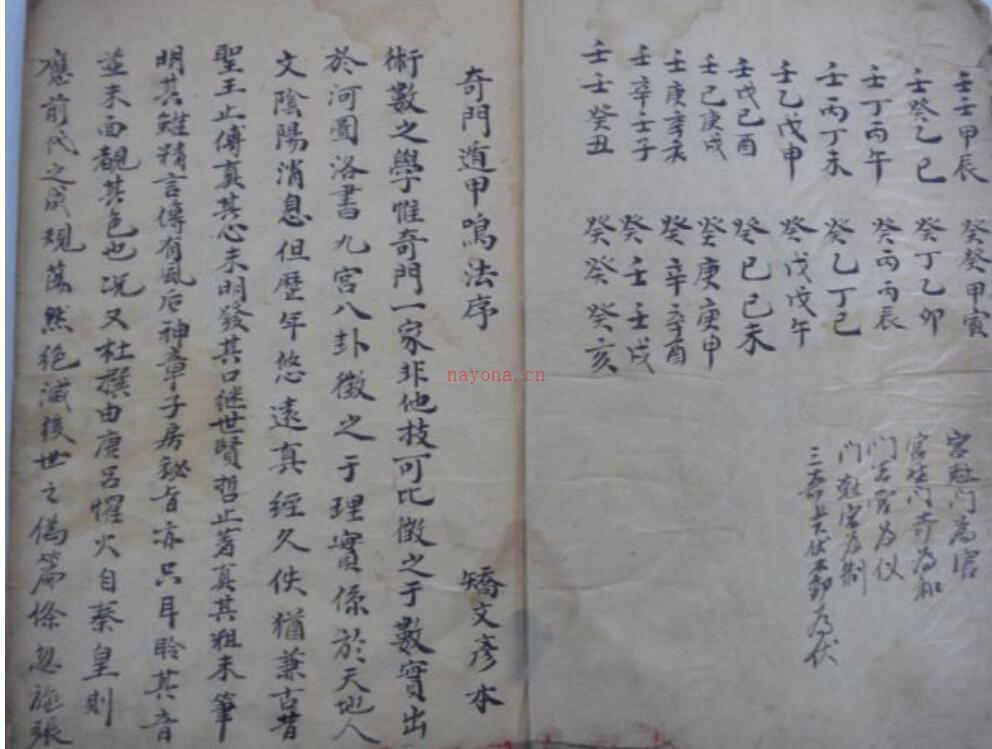 壬壬甲辰 癸癸甲寅
壬癸乙巳 癸丁乙卯
壬丁丙午 癸丙丙辰
壬丙丁未 癸乙丁巳
壬乙戊申 癸戊戊午
壬戊己酉 癸己己未
壬己庚戌 癸庚庚申
壬庚辛亥 癸辛辛酉
壬辛壬子 癸壬壬戌
壬壬癸丑 癸癸癸亥
宮尅门为
宮生门为和
门生宮为仪
门尅宮为制
为伏
奇門遁甲鳴法序 矯文彥本
術數之學惟奇門一家非他技可比徵之于數實出
於河圖洛書九宮八卦徵之于理實係於天地人
文陰陽消息但歷年悠遠真經久佚猶兼古昔
聖王止傳真其心未明發其口继世賢哲止著真其粗未筆
明其精言傳有風后神章子房秘旨亦只耳聆其音
並未面覩其色也况又杜撰由唐呂懼火自秦皇則
應前代之成規蕩然絶滅後世之偽篇條忽施張
nayona.cn